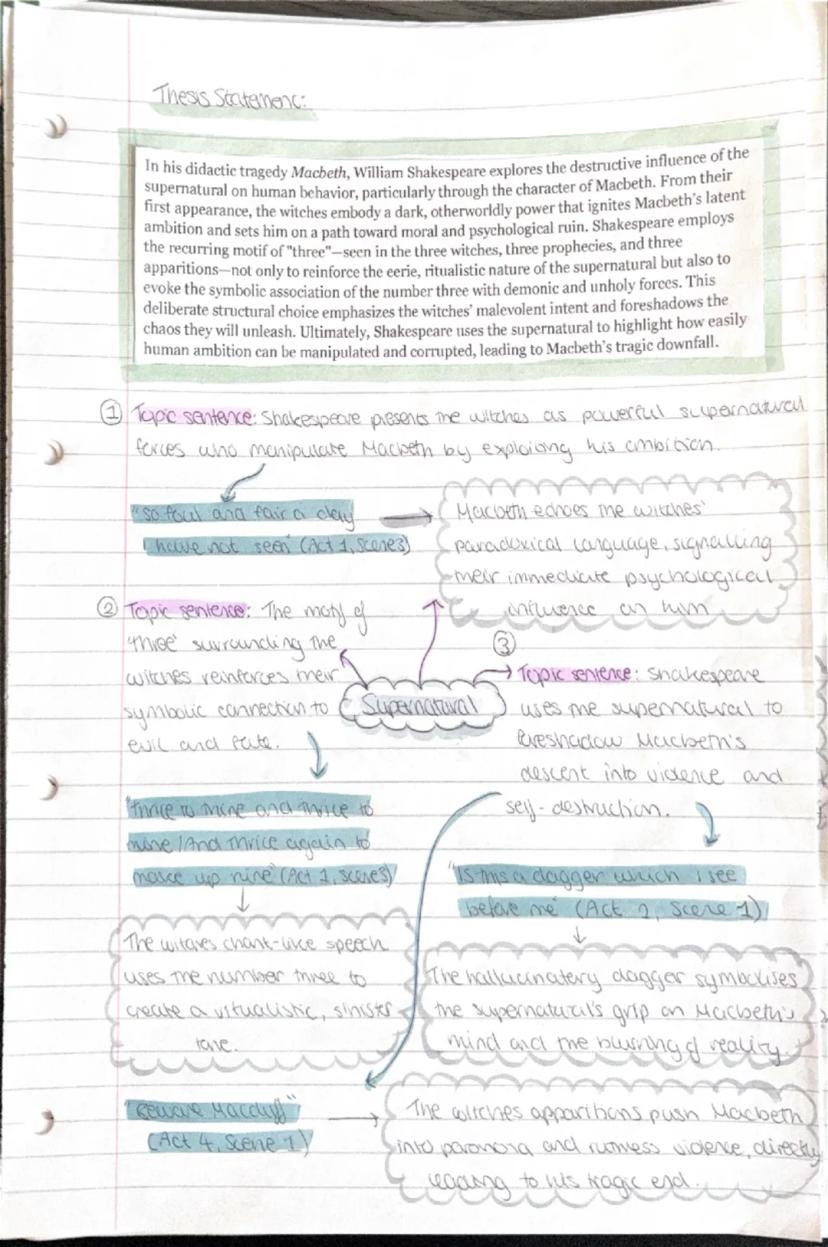 Thesis Statement:
In his didactic tragedy Macbeth, William Shakespeare explores the destructive influence of the
supernatural on human behavior, particularly through the character of Macbeth. From their
first appearance, the witches embody a dark, otherworldly power that ignites Macbeth's latent
ambition and sets him on a path toward moral and psychological ruin. Shakespeare employs
the recurring motif of "three"—seen in the three witches, three prophecies, and three
apparitions—not only to reinforce the eerie, ritualistic nature of the supernatural but also to
evoke the symbolic association of the number three with demonic and unholy forces. This
deliberate structural choice emphasizes the witches' malevolent intent and foreshadows the
chaos they will unleash. Ultimately, Shakespeare uses the supernatural to highlight how easily
human ambition can be manipulated and corrupted, leading to Macbeth's tragic downfall.
① Topic sentence: Shakespeare presents the witches as powerful supernatural
forces who manipulate Macbeth by exploiting his ambition.
"So foul and fair a day
I have not seen" (Act 1, Scene 3)
Macbeth echoes the witches'
paradoxical language, signalling
their immediate psychological
influence on him
② Topic sentence: The motif of
'three' surrounding the
witches reinforces their
symbolic connection to
evil and fate.
Supernatural
③
Topic sentence: Shakespeare
uses the supernatural to
foreshadow Macbeth's
descent into violence and
self-destruction.
"Thrice to thine and thrice to
mine / And thrice again to
make up nine" (Act 1, Scene 3)
The witches chant-like speech
uses the number three to
create a ritualistic, sinister
tone.
"Is this a dagger which I see
before me" (Act 2, Scene 1)
The hallucinatory dagger symbolises
the supernatural's grip on Macbeth's
mind and the blurring of reality
"Beware Macduff"
(Act 4, Scene 1)
The witches apparitions push Macbeth
into paranoia and ruthless violence, directly
leading to his tragic end.